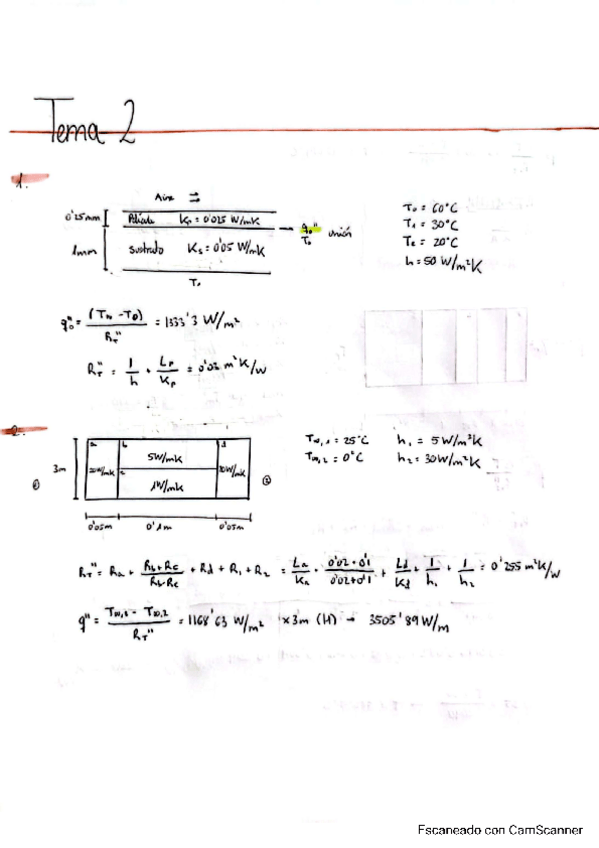 Tema 2
1.
Aire
0'25mm Película Kp = 0'025 W/mK
1mm Sustrato Ks = 0'05 W/mK
q0'' unión
T0
T1
T0 = 60°C
T1 = 30°C
h = 50 W/m²K
q0'' = (T∞ - T0) / RT'' = 1333'3 W/m²
RT'' = 1/h + Lp/Kp = 0'02 m²K/W
2.
3m
a b d
20W/mK 5W/mK
c 1W/mK
① ②
0'05m 0'1m 0'05m
T∞,1 = 25°C h1 = 5W/m²K
T∞,2 = 0°C h2 = 30W/m²K
RT'' = Ra + (Rb+Rc)/(Rb·Rc) + Rd + R1 + R2 = La/Ka + (0'02·0'1)/(0'02+0'1) + Ld/Kd + 1/h1 + 1/h2 = 0'255 m²K/W
q'' = (T∞,1 - T∞,2) / RT'' = 1168'63 W/m² × 3m (H) → 3505'89 W/m
Escaneado con CamScanner